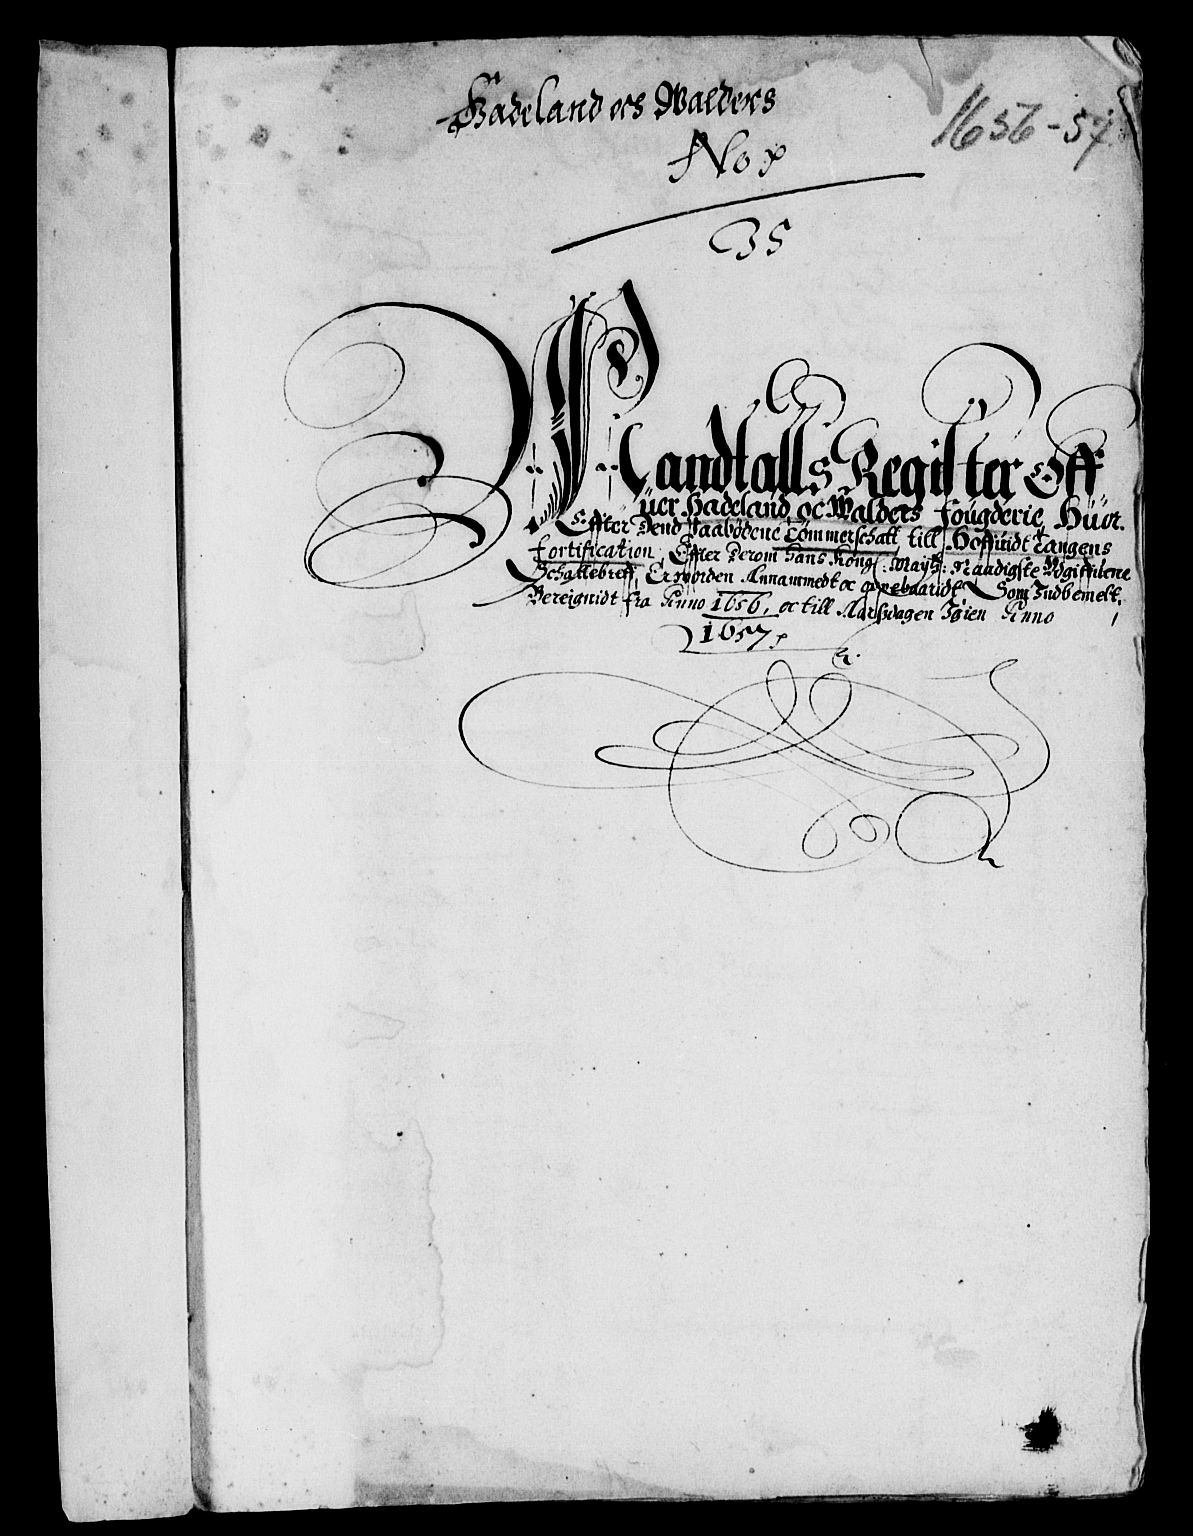 Hadeland och Walders
1656-57
No
35
Mandtalls Register Off
uer Hadeland oc Walders fougderie, Huor
Effter Dend Paabødene Tømmerschatt till Hoffuidt Tangens
Fortification, Effter Derom Hans Kong: Mayts: Naadigste Wdgiffuene
Schattebreff, Er worden Annammedt oc oppebaaridt Som Indbemelt,
Bereignidt fra Anno 1656, oc till Aarßdagen Igien Anno
1657